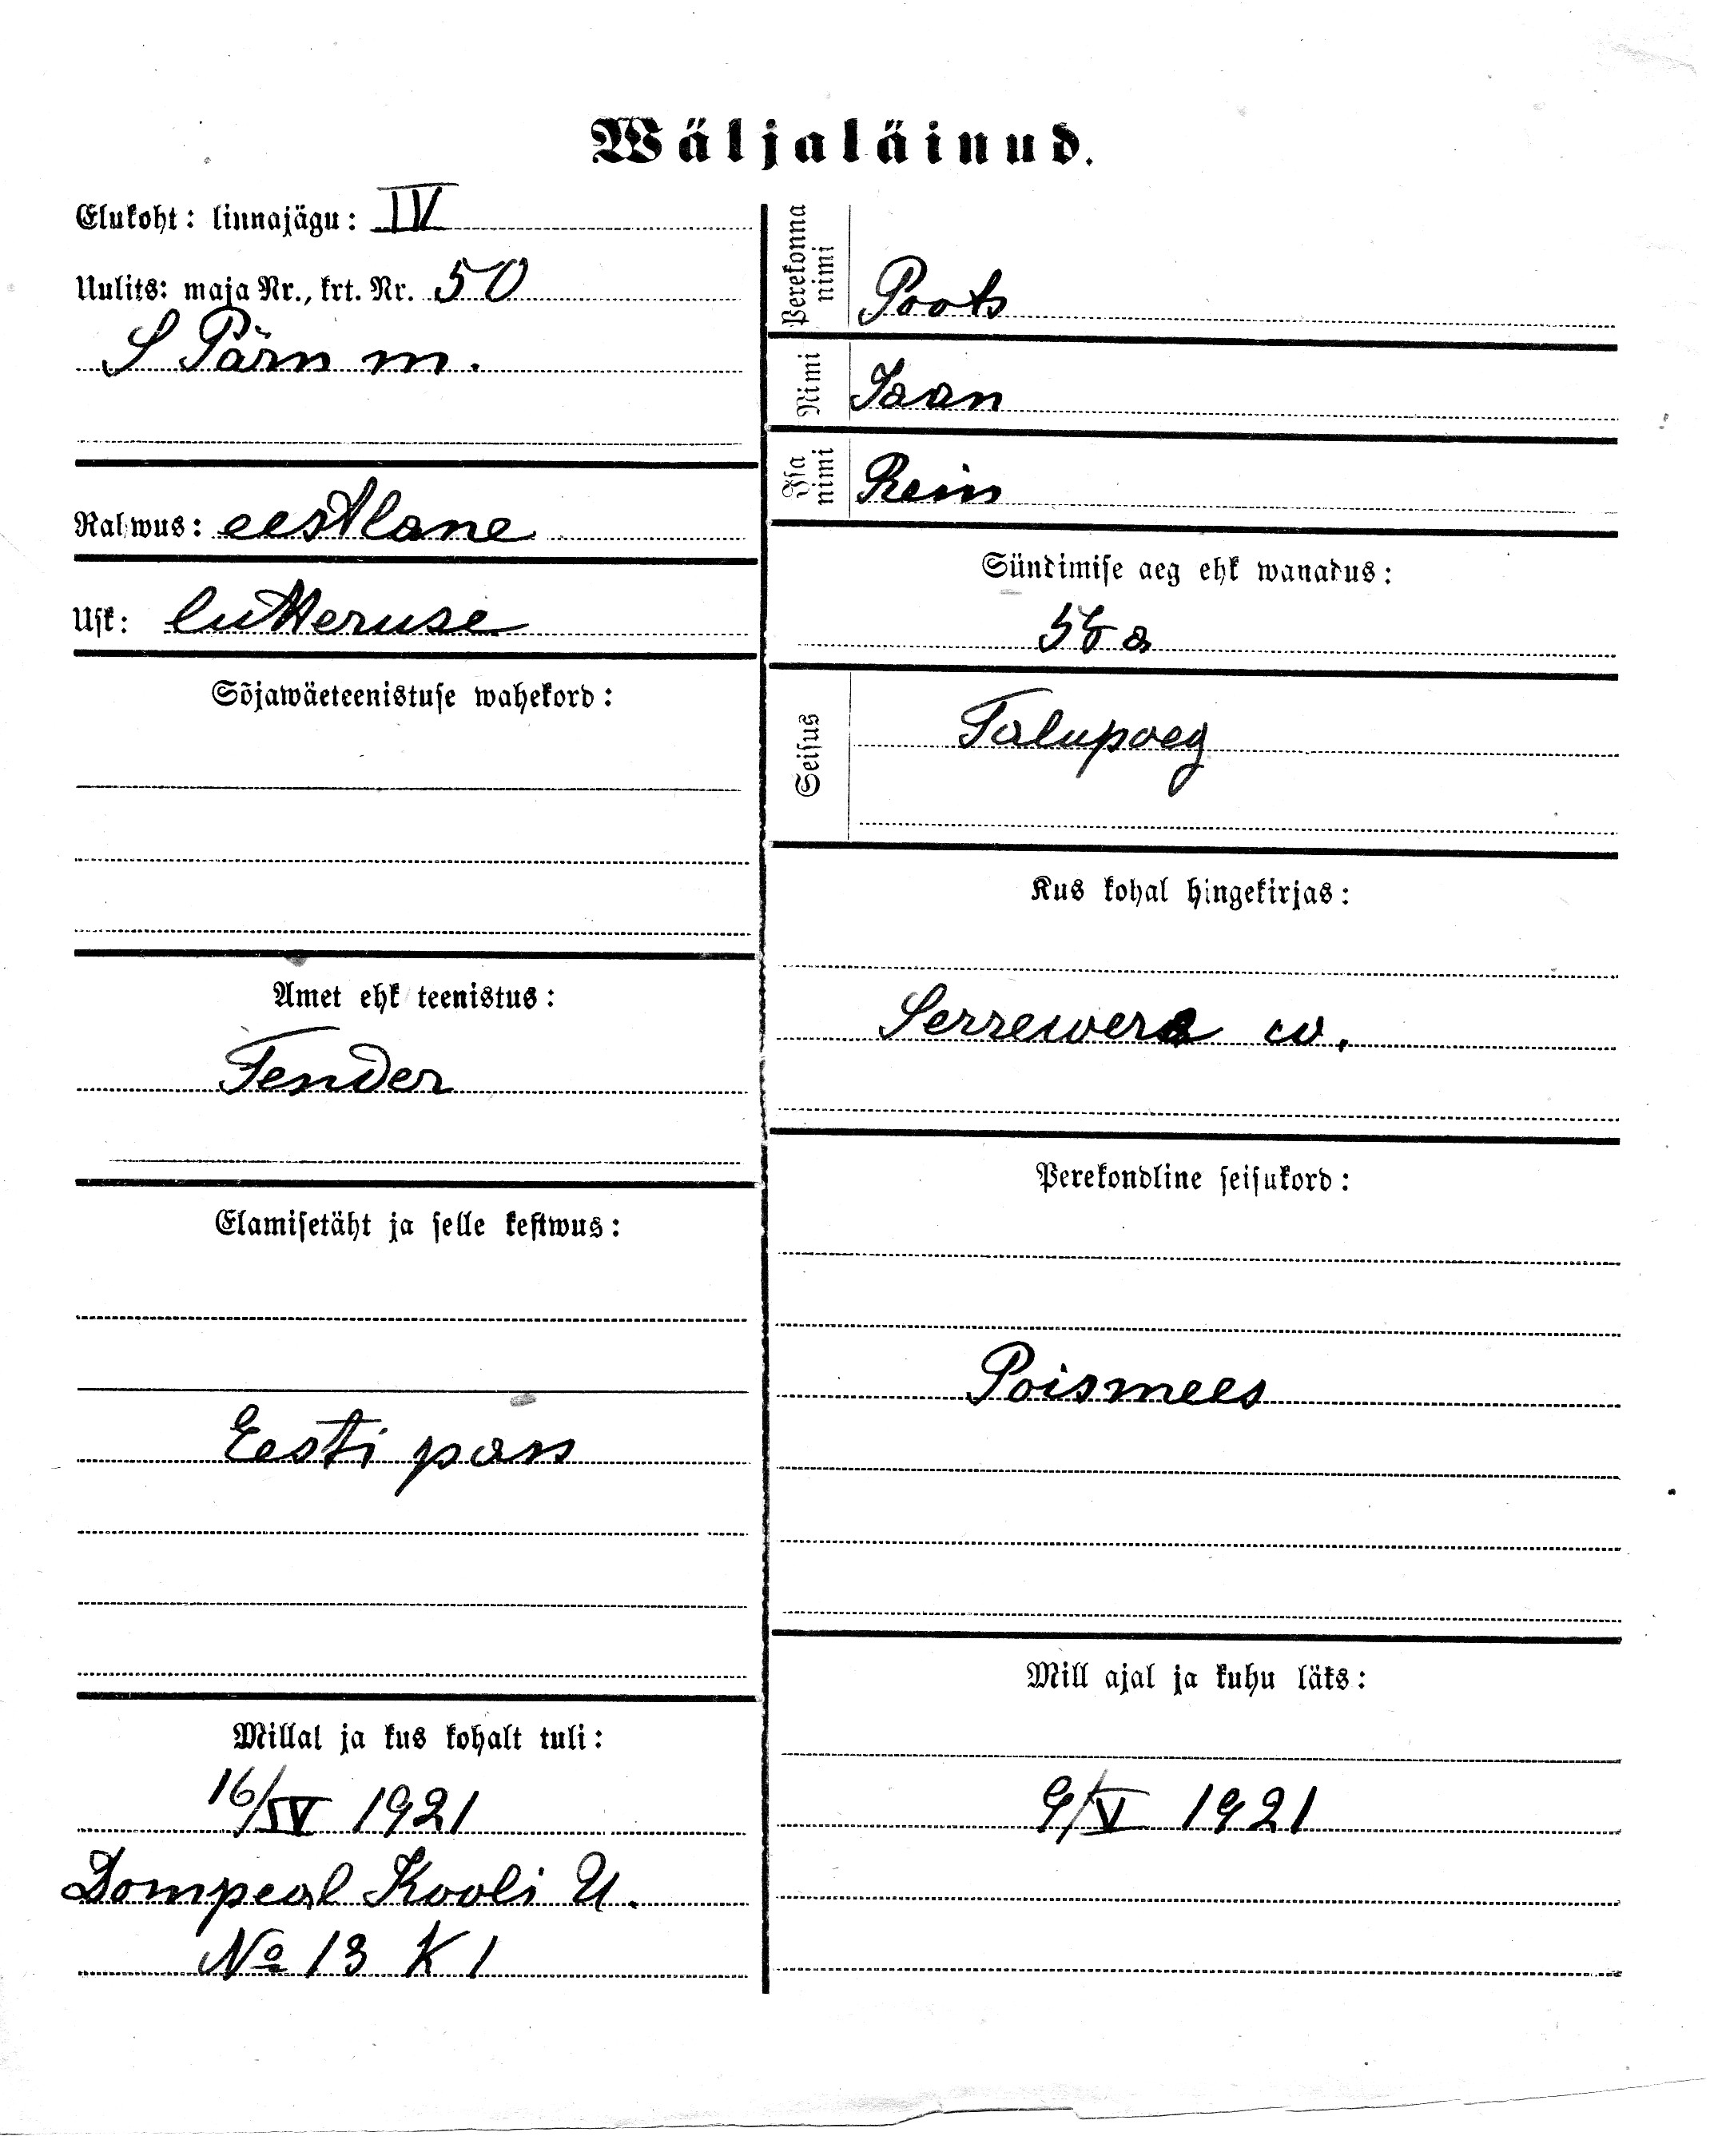 Wäljaläinud.
Elukoht: linnajägu: IV
Uulits: maja Nr., krt. Nr. 50
S Pärn m.
Rahwus: eestlane
Usk: lutteruse
Sõjawäeteenistuse wahekord:
Amet ehk teenistus:
Tender
Elamisetäht ja selle kestwus:
Eesti pass
Millal ja kus kohalt tuli:
16/IV 1921
Dompeal Kooli U.
No 13 K 1
Perekonna nimi
Poots
Nimi
Jaan
Isa nimi
Rein
Sündimise aeg ehk wanadus:
a
Seisus
Talupoeg
Kus kohal hingekirjas:
Serrewera w.
Perekondline seisukord:
Poismees
Mill ajal ja kuhu läks:
9/V 1921